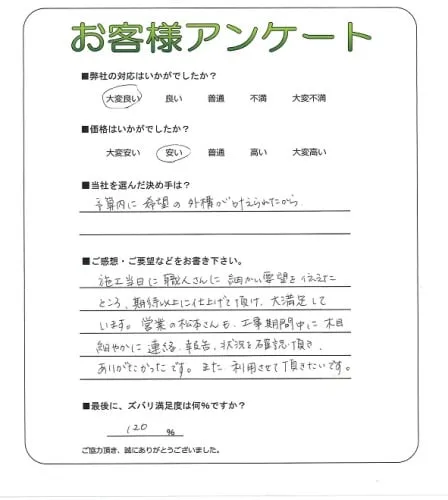 お客様アンケート
■弊社の対応はいかがでしたか?
大変良い 良い 普通 不満 大変不満
■価格はいかがでしたか?
大変安い 安い 普通 高い 大変高い
■当社を選んだ決め手は?
予算内に希望の外構が叶えられたから
■ご感想・ご要望などをお書き下さい。
施工当日に職人さんに細かい要望を伝えた
ところ、期待以上に仕上げて頂け、大満足して
います。営業の松本さんも、工事期間中に木目
細やかに連絡、報告、状況を確認頂き、
ありがたかったです。また利用させて頂きたいです。
■最後に、ズバリ満足度は何%ですか?
120 %
ご協力頂き、誠にありがとうございました。